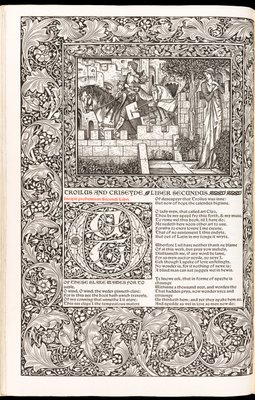 TROILUS AND CRISEYDE LIBER SECUNDUS
Incipit prohemium Secundi Libri
OUT
OF THESE BLAKE WAWES FOR TO
saylle,
O wind, O wind, the weder ginneth clere;
For in this see the boot hath swich travayle,
Of my conning that unnethe I it stere:
This see clepe I the tempestous matere
Of desespayr that Troilus was inne:
But now of hope the calendes biginne.
O lady myn, that called art Cleo,
Thou be my speed fro this forth, & my muse,
To ryme wel this book, til I have do;
Me nedeth here noon other art to use.
Forwhy to every lovere I me excuse,
That of no sentement I this endyte,
But out of Latin in my tonge it wryte.
Wherfore I nil have neither thank ne blame
Of al this werk, but prey yow mekely,
Disblameth me, if any word be lame,
For as myn auctor seyde, so sey I.
Eek though I speke of love unfelingly,
No wonder is, for it nothing of newe is;
A blind man can nat juggen wel in hewis.
Ye knowe eek, that in forme of speche is
chaunge
Withinne a thousand yeer, and wordes tho
That hadden prys, now wonder nyce and
straunge
Us thinketh hem; and yet they spake hem so,
And spedde as wel in love as men now do;